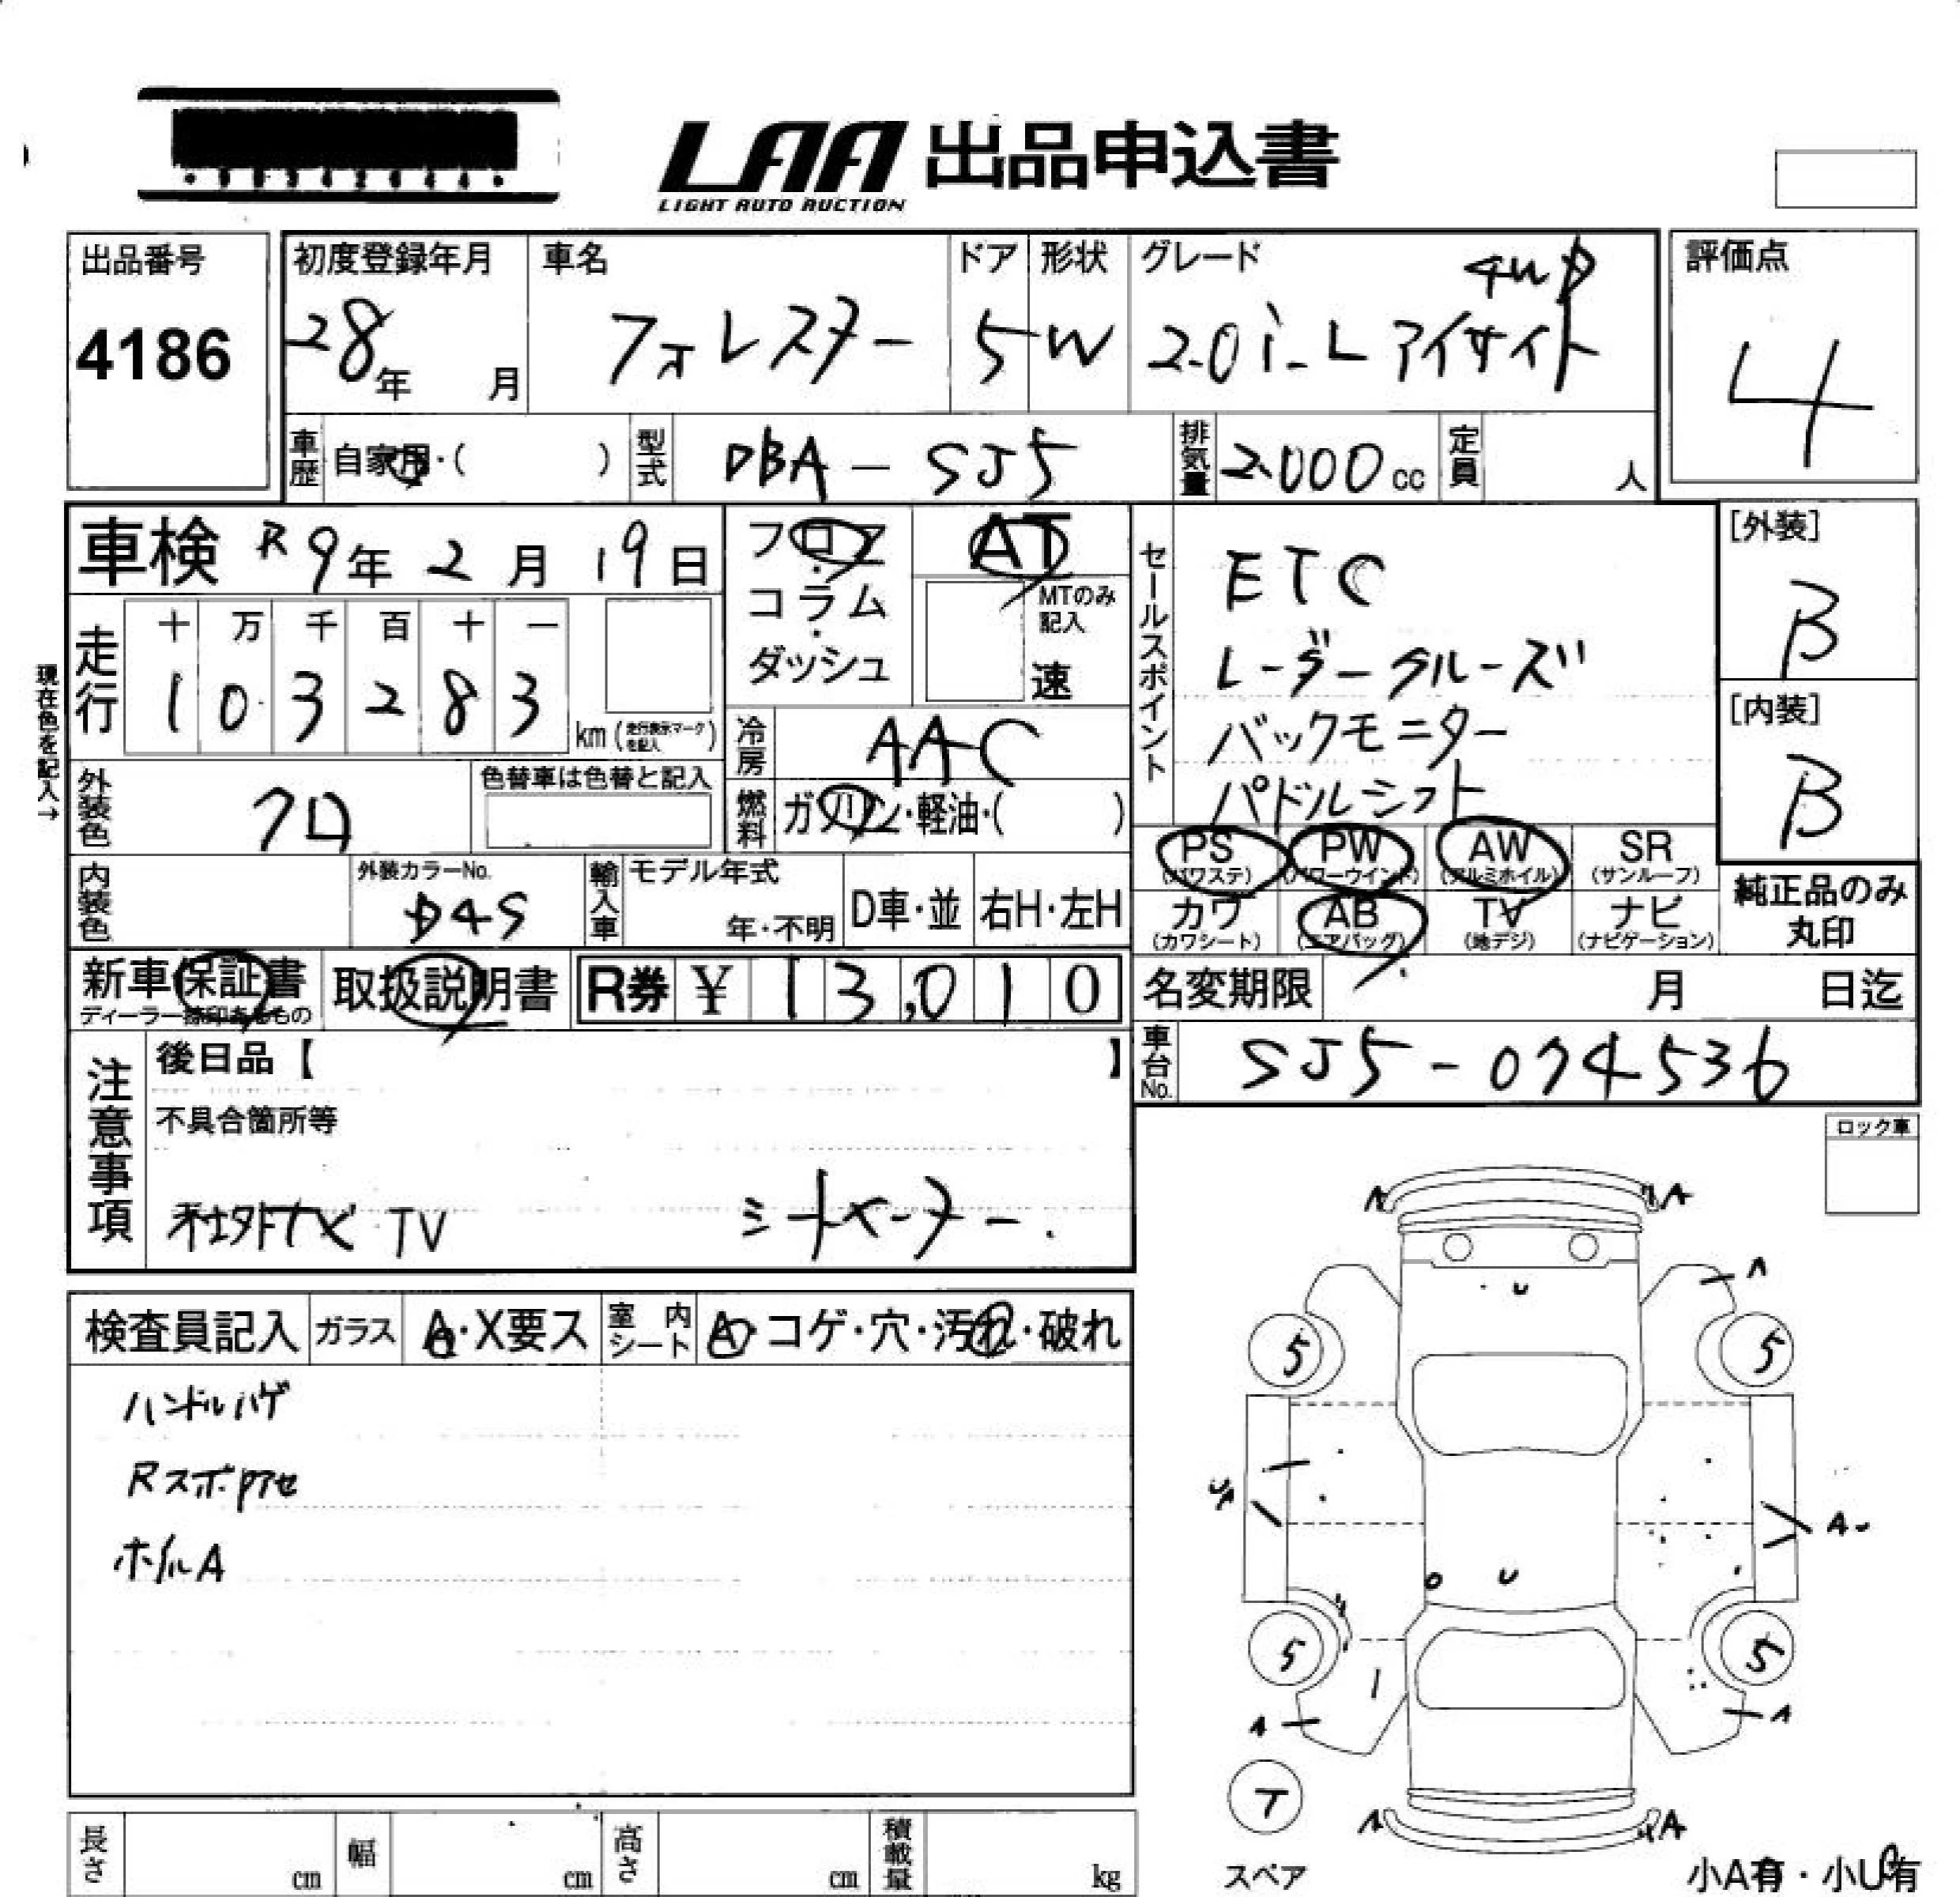 LAA 出品申込書
LIGHT AUTO AUCTION
出品番号
4186
初度登録年月
28年 月
車名
フォレスター
ドア
5
形状
W
グレード
4WD
2.0i-L アイサイト
評価点
4
車歴 自家用・( )
型式 DBA-SJ5
排気量 2.000cc
定員 人
車検 R9年2月19日
フロア
コラム
ダッシュ
AT
MTのみ記入
速
セールスポイント
ETC
レーダークルーズ
バックモニター
パドルシフト
[外装]
B
[内装]
B
現在色を記入→
走行
十 万 千 百 十 一
1 0 3 2 8 3
km(走行表示マークを記入)
冷房 AAC
燃料 ガソリン・軽油・( )
外装色 クロ
色替車は色替と記入
内装色
外装カラーNo.
D4S
輸入車
モデル年式
年・不明
D車・並
右H・左H
PS (パワステ)
PW (パワーウインド)
AW (アルミホイル)
SR (サンルーフ)
カワ (カワシート)
AB (エアバッグ)
TV (地デジ)
ナビ (ナビゲーション)
純正品のみ丸印
新車保証書
ディーラー捺印あるもの
取扱説明書
R券 ¥ 13,010
名変期限 月 日迄
車台No. SJ5-074536
注意事項
後日品【 】
不具合箇所等
社外ナビ・TV
シートヒーター.
ロック車
検査員記入
ガラス A・X要ス
室内シート A・コゲ・穴・汚れ・破れ
ハンドルハゲ
Rスポ.アセ
ホイルA
A A
U A
5 5
A
U U
5 5
A A
T
A A
スペア
小A有・小U有
長さ cm
幅 cm
高さ cm
積載量 kg